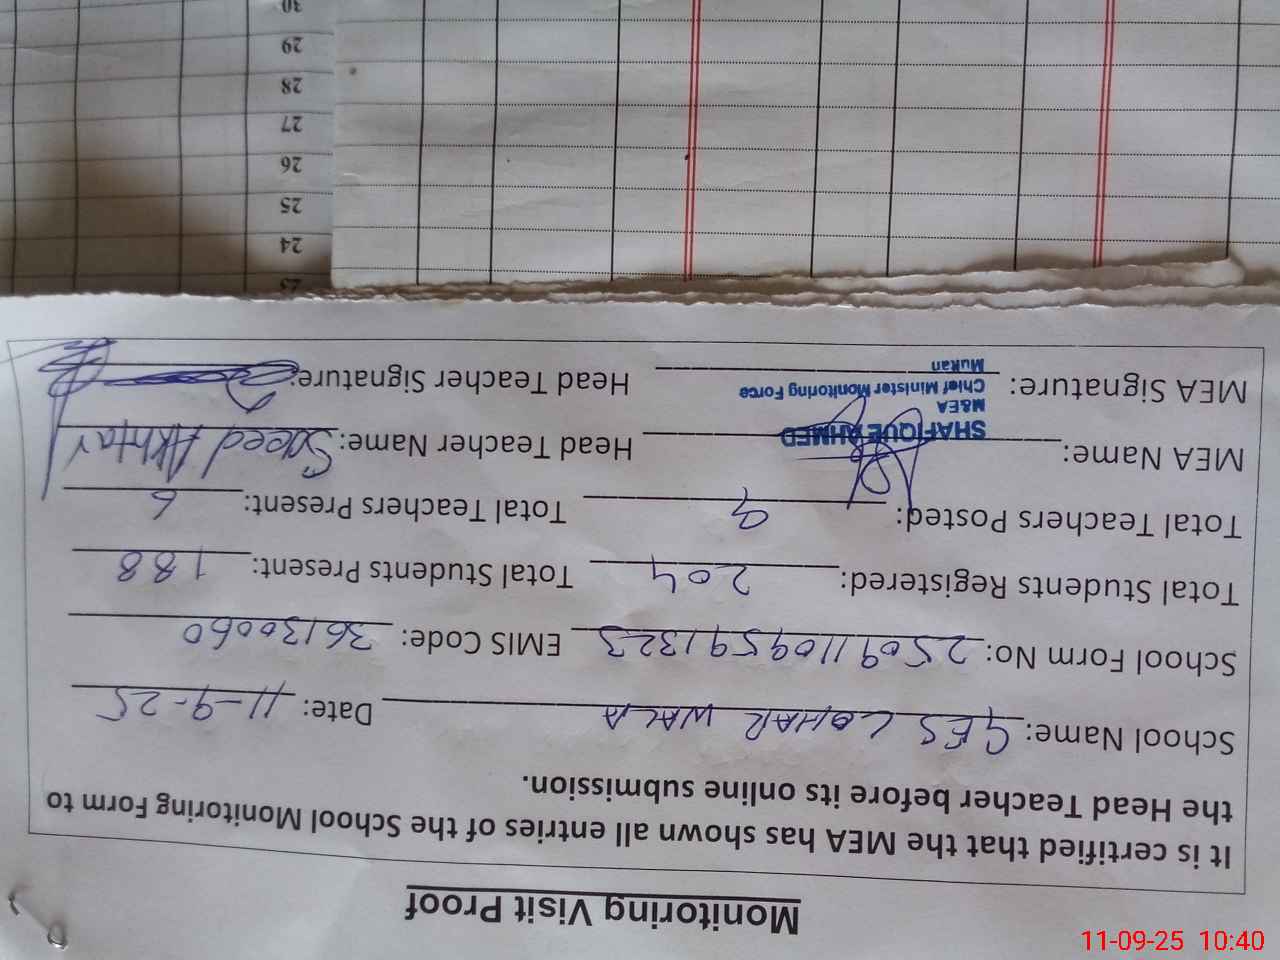 Monitoring Visit Proof
It is certified that the MEA has shown all entries of the School Monitoring Form to
the Head Teacher before its online submission.
School Name: GES LOHAR WALA Date: 11-9-25
School Form No: 25091109591323 EMIS Code: 36130060
Total Students Registered: 204 Total Students Present: 188
Total Teachers Posted: 9 Total Teachers Present: 6
MEA Name: Head Teacher Name: Saeed Akhtar
SHAFIQUE AHMED
M&EA
Chief Minister Monitoring Force
Multan
MEA Signature: Head Teacher Signature:
23
24
25
26
27
28
29
30
11-09-25 10:40